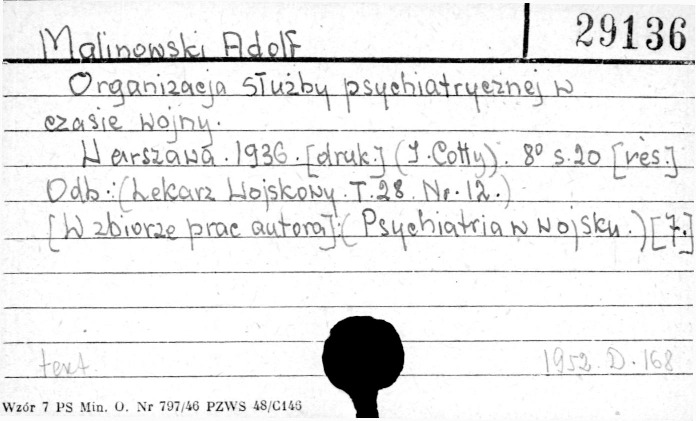 Malinowski Adolf 29136
Organizacja służby psychiatrycznej w
czasie wojny.
Warszawa. 1936. [druk.] (J. Cotty). 8° s. 20 [rés.]
Odb.: (Lekarz Wojskowy. T. 28. Nr. 12.)
[W zbiorze prac autora]: (Psychiatria w wojsku.) [7.]
text. 1952. D. 168
Wzór 7 PS Min. O. Nr 797/46 PZWS 48/C146